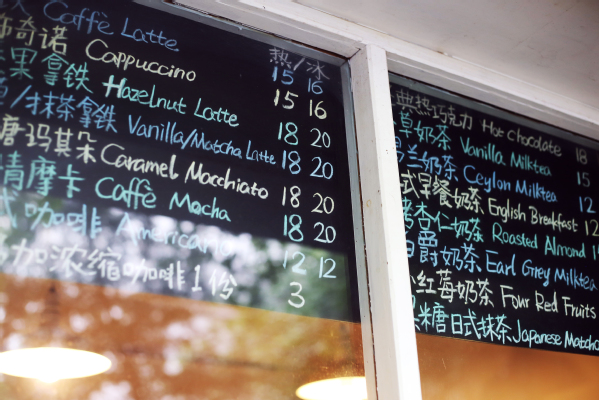 热/冰
Caffè Latte 15 16
奇诺 Cappuccino 15 16
果拿铁 Hazelnut Latte 18 20
/抹茶拿铁 Vanilla/Matcha Latte 18 20
玛其朵 Caramel Macchiato 18 20
情摩卡 Caffè Mocha 18 20
咖啡 Americano 12 12
加浓缩咖啡1份 3
热巧克力 Hot Chocolate 18
草奶茶 Vanilla Milktea 15
兰奶茶 Ceylon Milktea 12
式早餐奶茶 English Breakfast 12
杏仁奶茶 Roasted Almond
爵奶茶 Earl Grey Milktea
红莓奶茶 Four Red Fruits
糖日式抹茶 Japanese Matcha